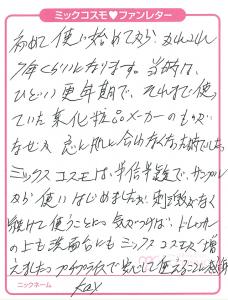 ミックコスモ♥ファンレター
初めて使い始めてから、かれこれ
7年くらいになります。当時は、
ひどい更年期で、それまで使っ
ていた某化粧品メーカーのものが
なぜか急に肌と合わなくなった時でした。
ミックスコスモは、半信半疑で、サンプル
から使いはじめましたが、刺激がなく
続けて使うことに。気がつけば、ドレッサー
の上も洗面台にもミックスコスモが増
えました。プチプライスで安心して使えることに感謝
ニックネーム